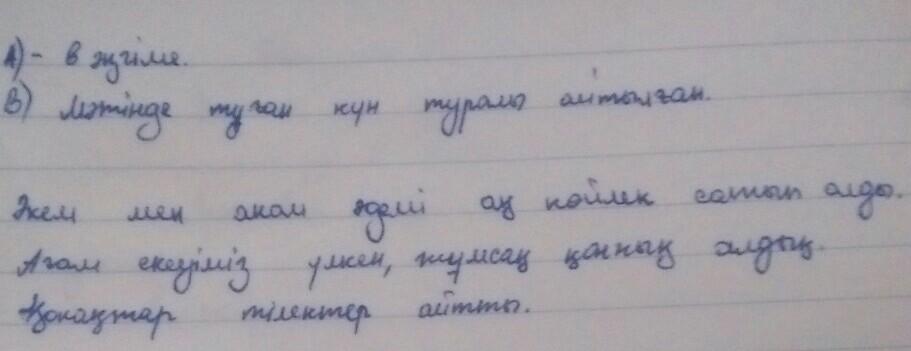 А) - әңгіме.
В) Мәтінде туған күн туралы айтылған.
Әкем мен анам әдемі ақ көйлек сатып алды.
Ағам екеуіміз үлкен, жұмсақ қонжық алдық.
Қонақтар тілектер айтты.